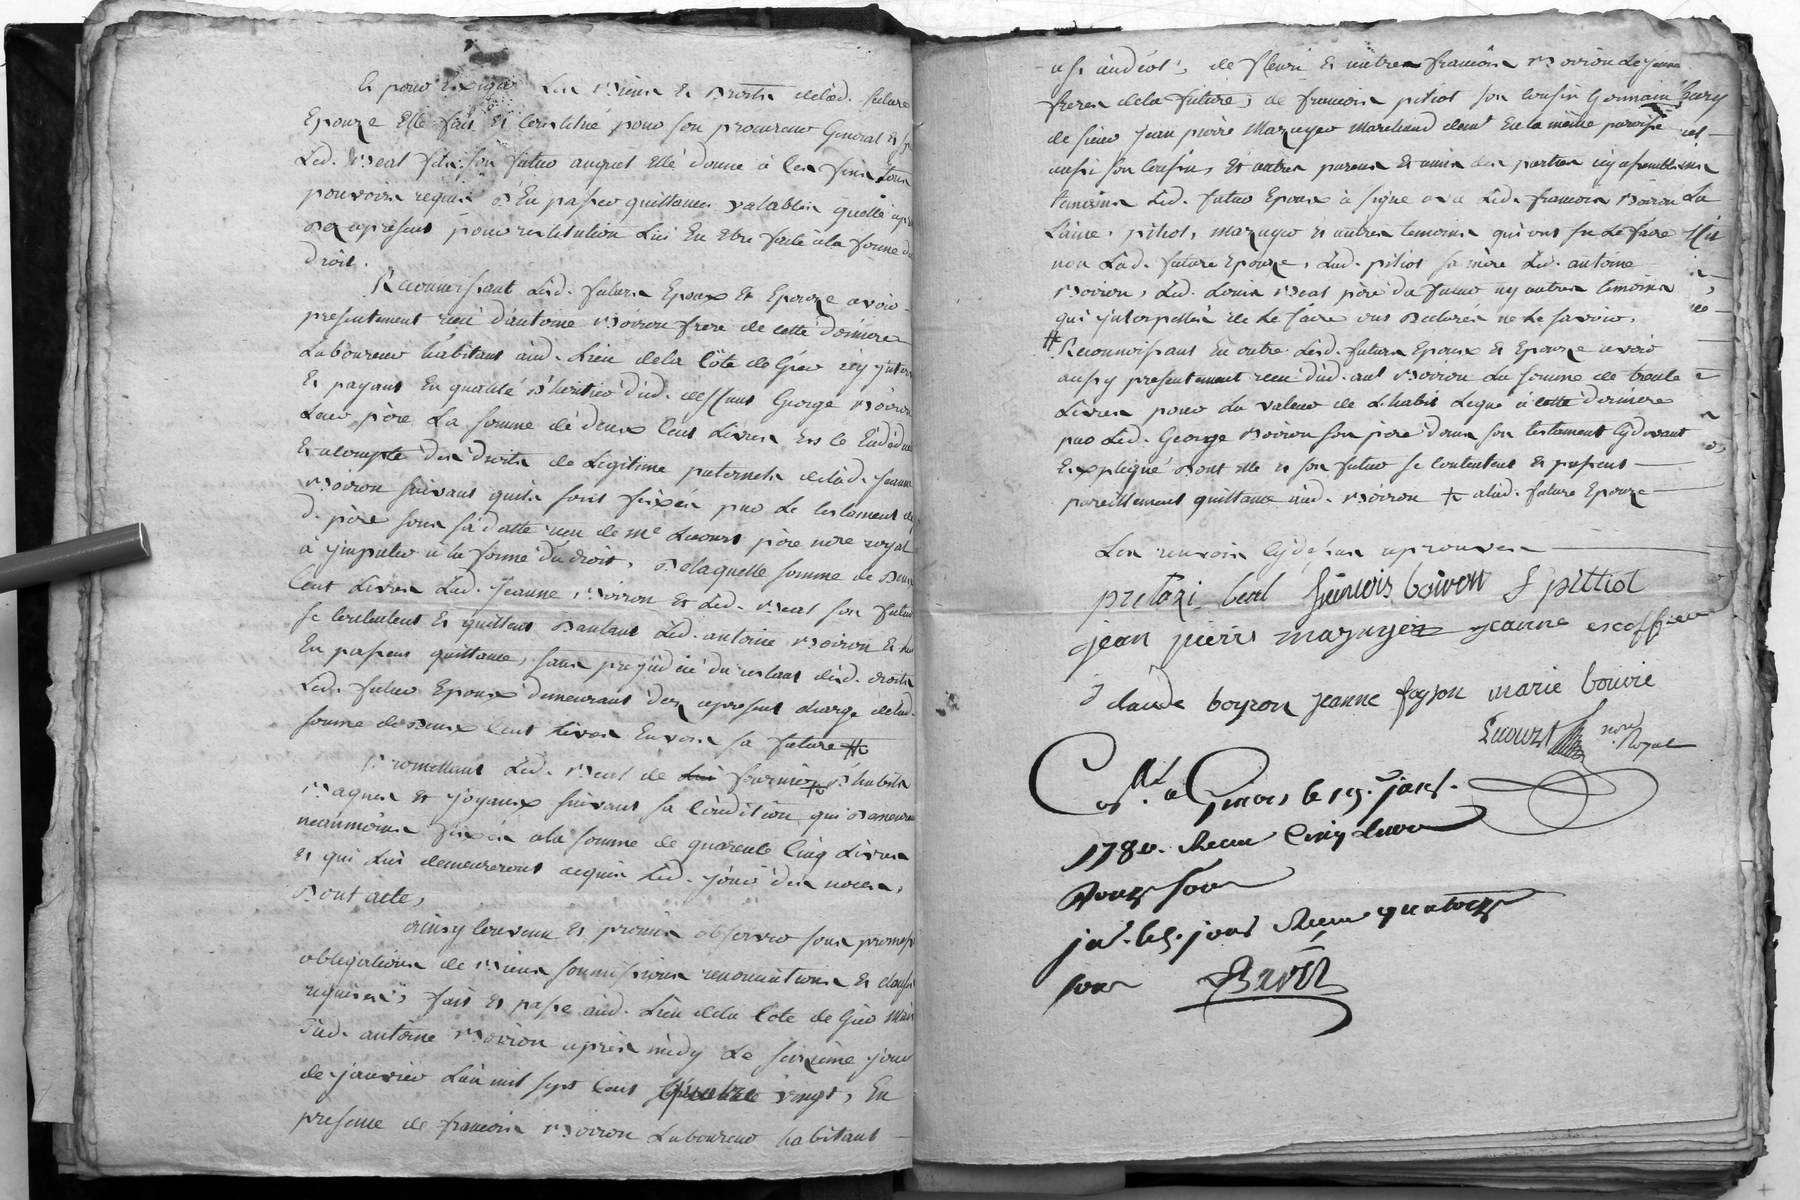 Et pour exiger les Biens et Droits delad. future
Epouze Elle fait et constitué pour son procureur General et
Led. Beal fils son futur auquel elle donne à ces fins tous
pouvoirs requis d'En passer quittances valables quelle
des apresent pour restitution Lui En Etre faite à la forme du
droit.
Reconnoissant Lesd. futurs Epoux Et Epouze avoir
presentement reçu d'antoine Boiron frere de cette derniere
Laboureur habitant aud. Lieu de la Côte de Giér icy
Et payant En qualité d'heritier dud. deffunt George Boiron
Leur père La somme de deux Cent Livres
Et acompte des droits de Legitime paternels delad. Jeanne
Boiron suivant quils sont fixés par Le testament de
d. père sous sa datte reçu de Me Lecourt père nore royal
à ymputer a la forme du droit, De laquelle somme de Deux
Cent Livres Lad. Jeanne Boiron et Led. Beal son futur
se Contentent et quittent Dautant Led. antoine Boiron Et lui
En passent quittance, sans prejudice du restant desd. droits
Led. futur Epoux demeurant des apresent chargé delad.
somme de Deux Cent Livres Envers sa future #
Promettant Led. Beal de fournir d'habits
Bagues Et joyaux suivant sa Condition qui Demeurent
neanmoins fixés ala somme de quarente Cinq Livres
et qui Lui demeureront acquis Led. jour des noces,
Dont acte,
ainsy Convenu et promis observer sous promesses
obligations de Biens soumissions renonciations et clauses
requises, fait et passé aud. Lieu dela Cote de Giér
dud. antoine Boiron après midy Le seizième jour
de janvier L'an mil sept Cent quatre vingt, En
presence de francois Boiron Laboureur habitant
de fleuri et autre francois Boiron Le jeune
freres dela future, de francois pitiot son Cousin Germain
de sieur jean pierre Mazuyer Marchand demt En la même paroisse
aussi son Cousin, Et autres parens Et amis des parties icy assemblés
temoins Led. futur Epoux a signé avec Led. francois Boiron
L'ainé, pitiot, mazuyer et autres temoins qui ont su Le faire
non Lad. future Epouze, Lad. pitiot sa mère Led. antoine
Boiron, Led. Louis Beal père du futur ny autres temoins
qui ynterpellés de Le faire ont Declarés ne Le savoir.
# Reconnoissant En outre Lesd. futurs Epoux et Epouze avoir
aussy presentement reçu dud. ant Boiron La somme de trente
Livres pour La valeur de L'habit Legué à cette derniere
par Led. George Boiron son père dans son testament cydevant
Expliqué Dont elle et son futur se contentent et passent
pareillement quittance aud. Boiron + alad. future Epouze
Les renvois cydessus aprouvés
beal françois boiron f pittiot
jean pierre mazuyer jeanne escoffier
claude boyron jeanne fayson marie bouvie
Lecourt nore Royal
Collé a Giér le 19. janr.
1780. Recu Cinq Livres
Douze sous
jar. les. jours Recu quatorze
sous